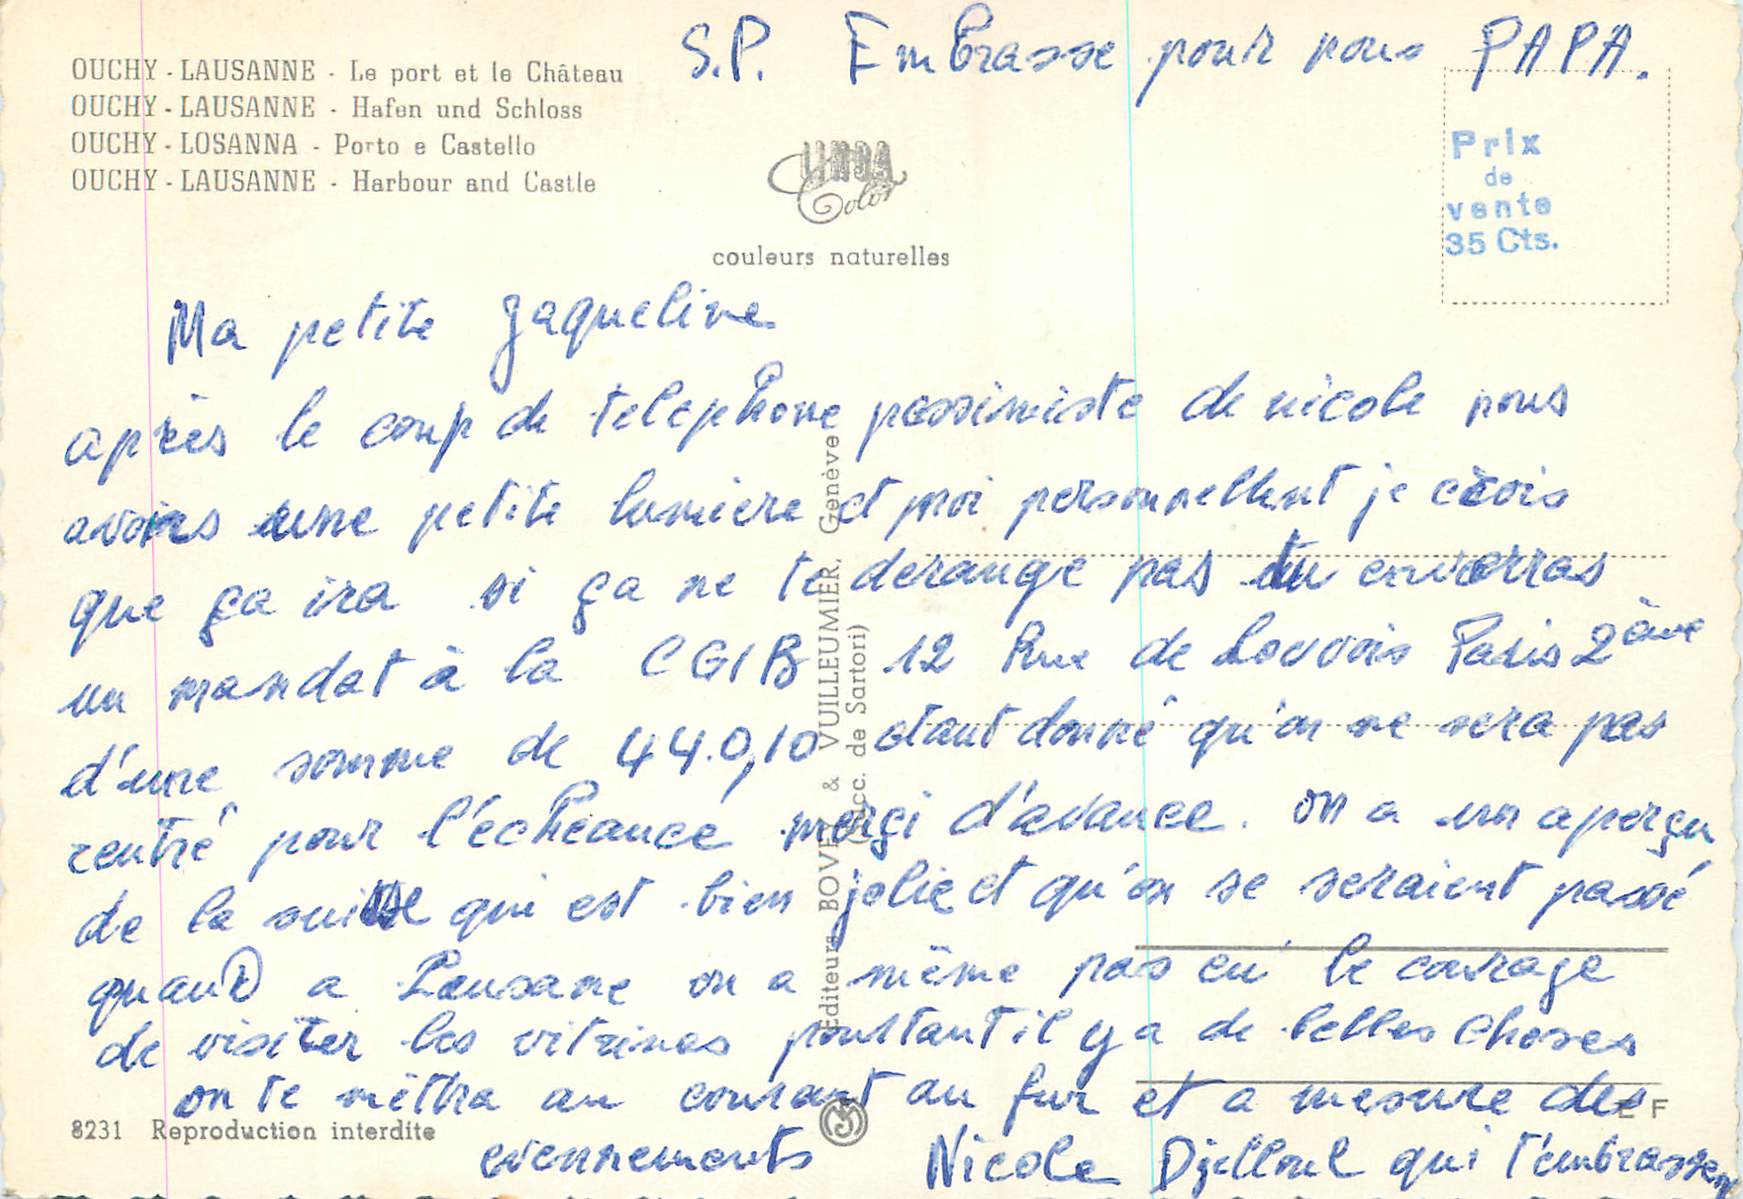 S.P. Embrasse pour nous PAPA.
OUCHY - LAUSANNE - Le port et le Château
OUCHY - LAUSANNE - Hafen und Schloss
OUCHY - LOSANNA - Porto e Castello
OUCHY - LAUSANNE - Harbour and Castle
Color
couleurs naturelles
Prix
de
vente
35 Cts.
Ma petite Jaqueline
après le coup de telephone pessimiste de nicole nous
avons une petite lumiere et moi personnellent je crois
que ça ira si ça ne te derange pas tu enverras
un mandat à la CGIB 12 Rue de Louvois Paris 2ème
d'une somme de 44.0,10 etant donné qu'on ne sera pas
rentré pour l'echeance merçi d'avance. on a un aperçu
de la suisse qui est bien jolie et qu'on se seraient passé
quand a Lausane on a même pas eu le courage
de visiter les vitrines pourtant il y a de belles choses
on te mettra au courant au fur et a mesure des
evennements Nicole Djelloul qui t'embrassen
Editeurs BOVEY & VUILLEUMIER, Genève
(Succ. de Sartori)
8231 Reproduction interdite
E F